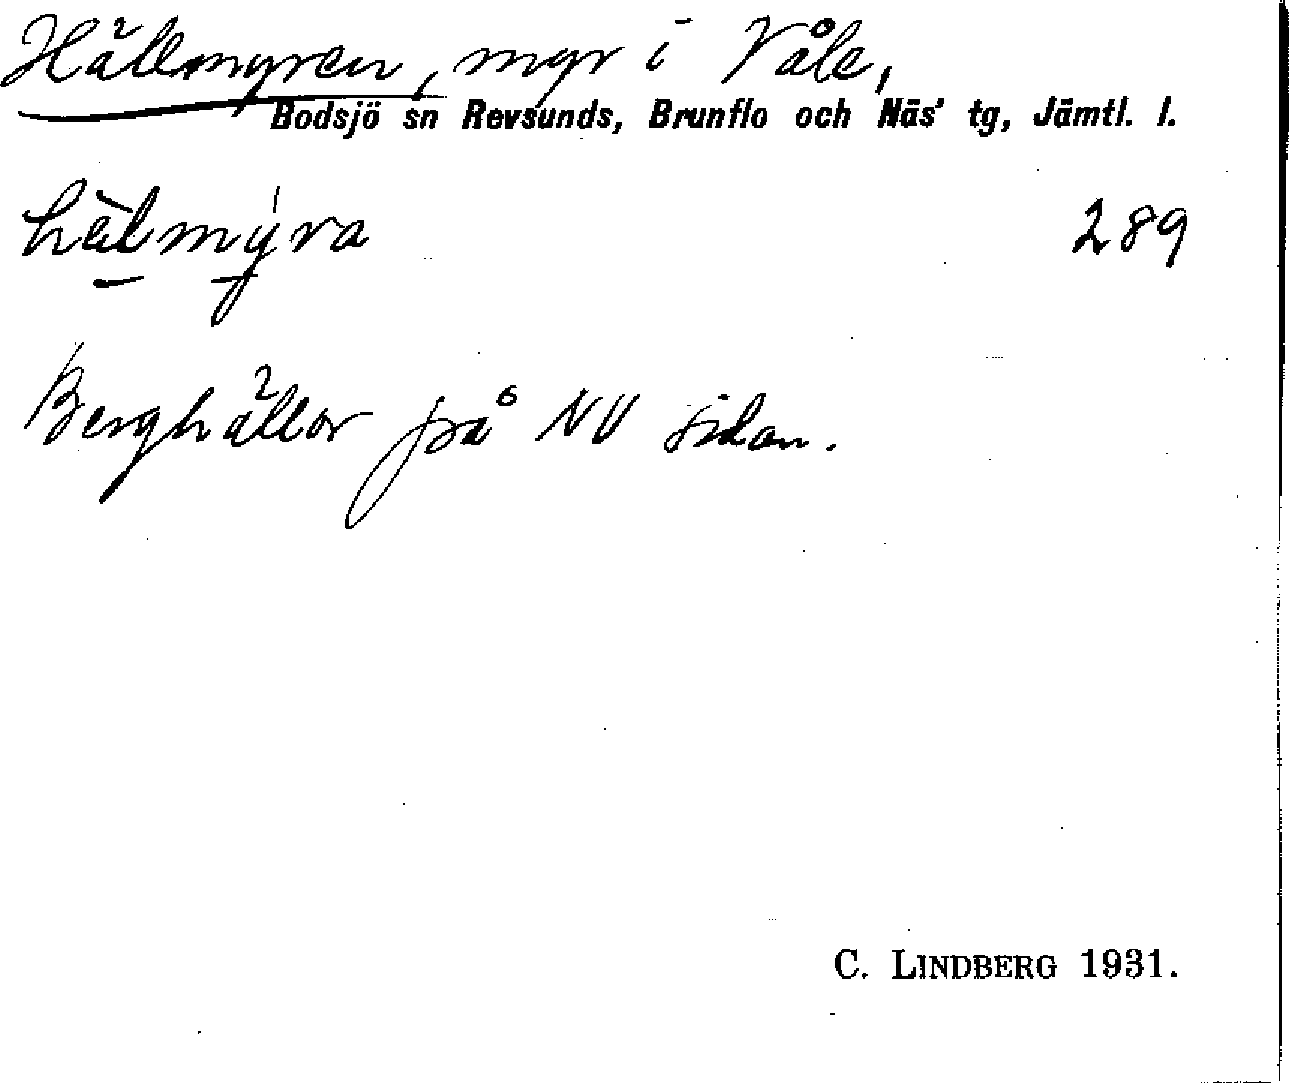 Hällmyren, myr i Våle,
Bodsjö sn Revsunds, Brunflo och Näs' tg, Jämtl. l.
hä̀lmýra 289
Berghällor på NV sidan.
C. LINDBERG 1931.